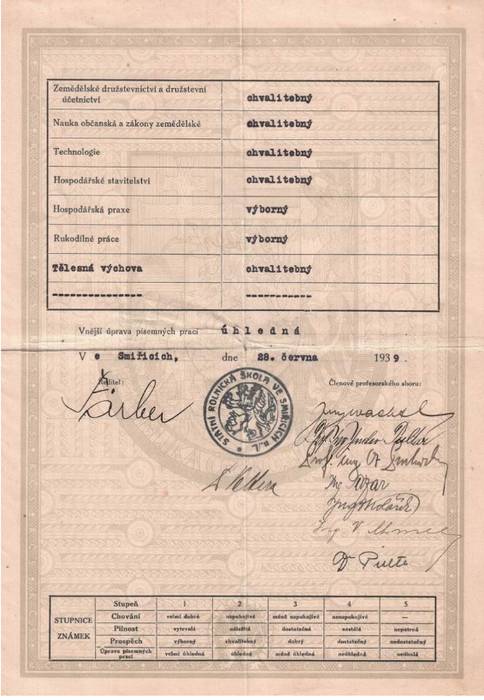 Zemědělské družstevnictví a družstevní
účetnictví chvalitebný
Nauka občanská a zákony zemědělské chvalitebný
Technologie chvalitebný
Hospodářské stavitelství chvalitebný
Hospodářská praxe výborný
Rukodílné práce výborný
Tělesná výchova chvalitebný
--------------- -----------
Vnější úprava písemných prací úhledná
V e Smiřicích, dne 28. června 1939.
Ředitel: Členové profesorského sboru:
Färber
STÁTNÍ ROLNICKÁ ŠKOLA VE SMIŘICÍCH n./L.
Ing
Ing
Ing. V.
Dr
STUPNICE ZNÁMEK
Stupeň 1 2 3 4 5
Chování velmi dobré uspokojivé méně uspokojivé neuspokojivé
Pilnost vytrvalá náležitá dostatečná nestálá nepatrná
Prospěch výborný chvalitebný dobrý dostatečný nedostatečný
Úprava písemných prací velmi úhledná úhledná méně úhledná neúhledná nedbalá